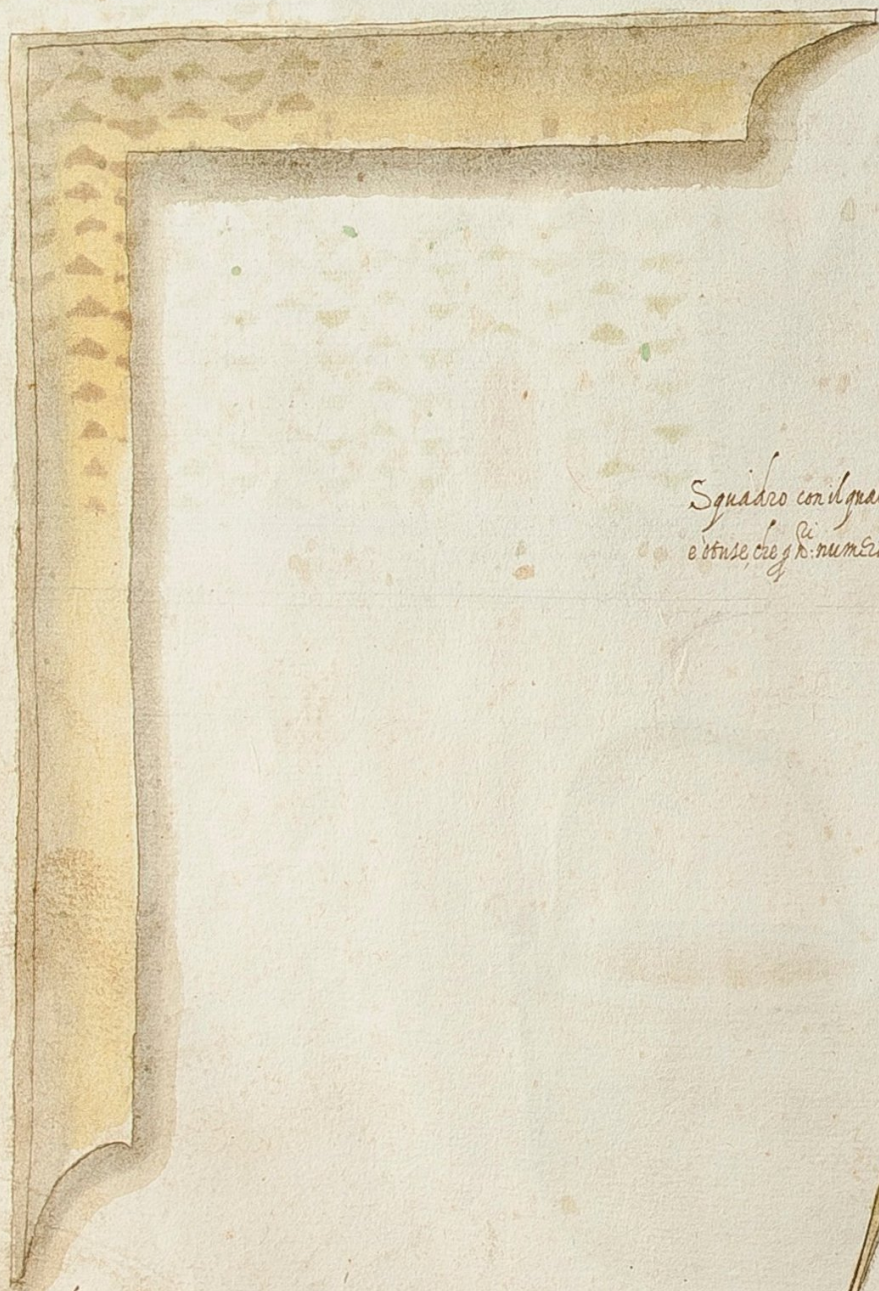 Squadro con il qua
e òtuse, che numer